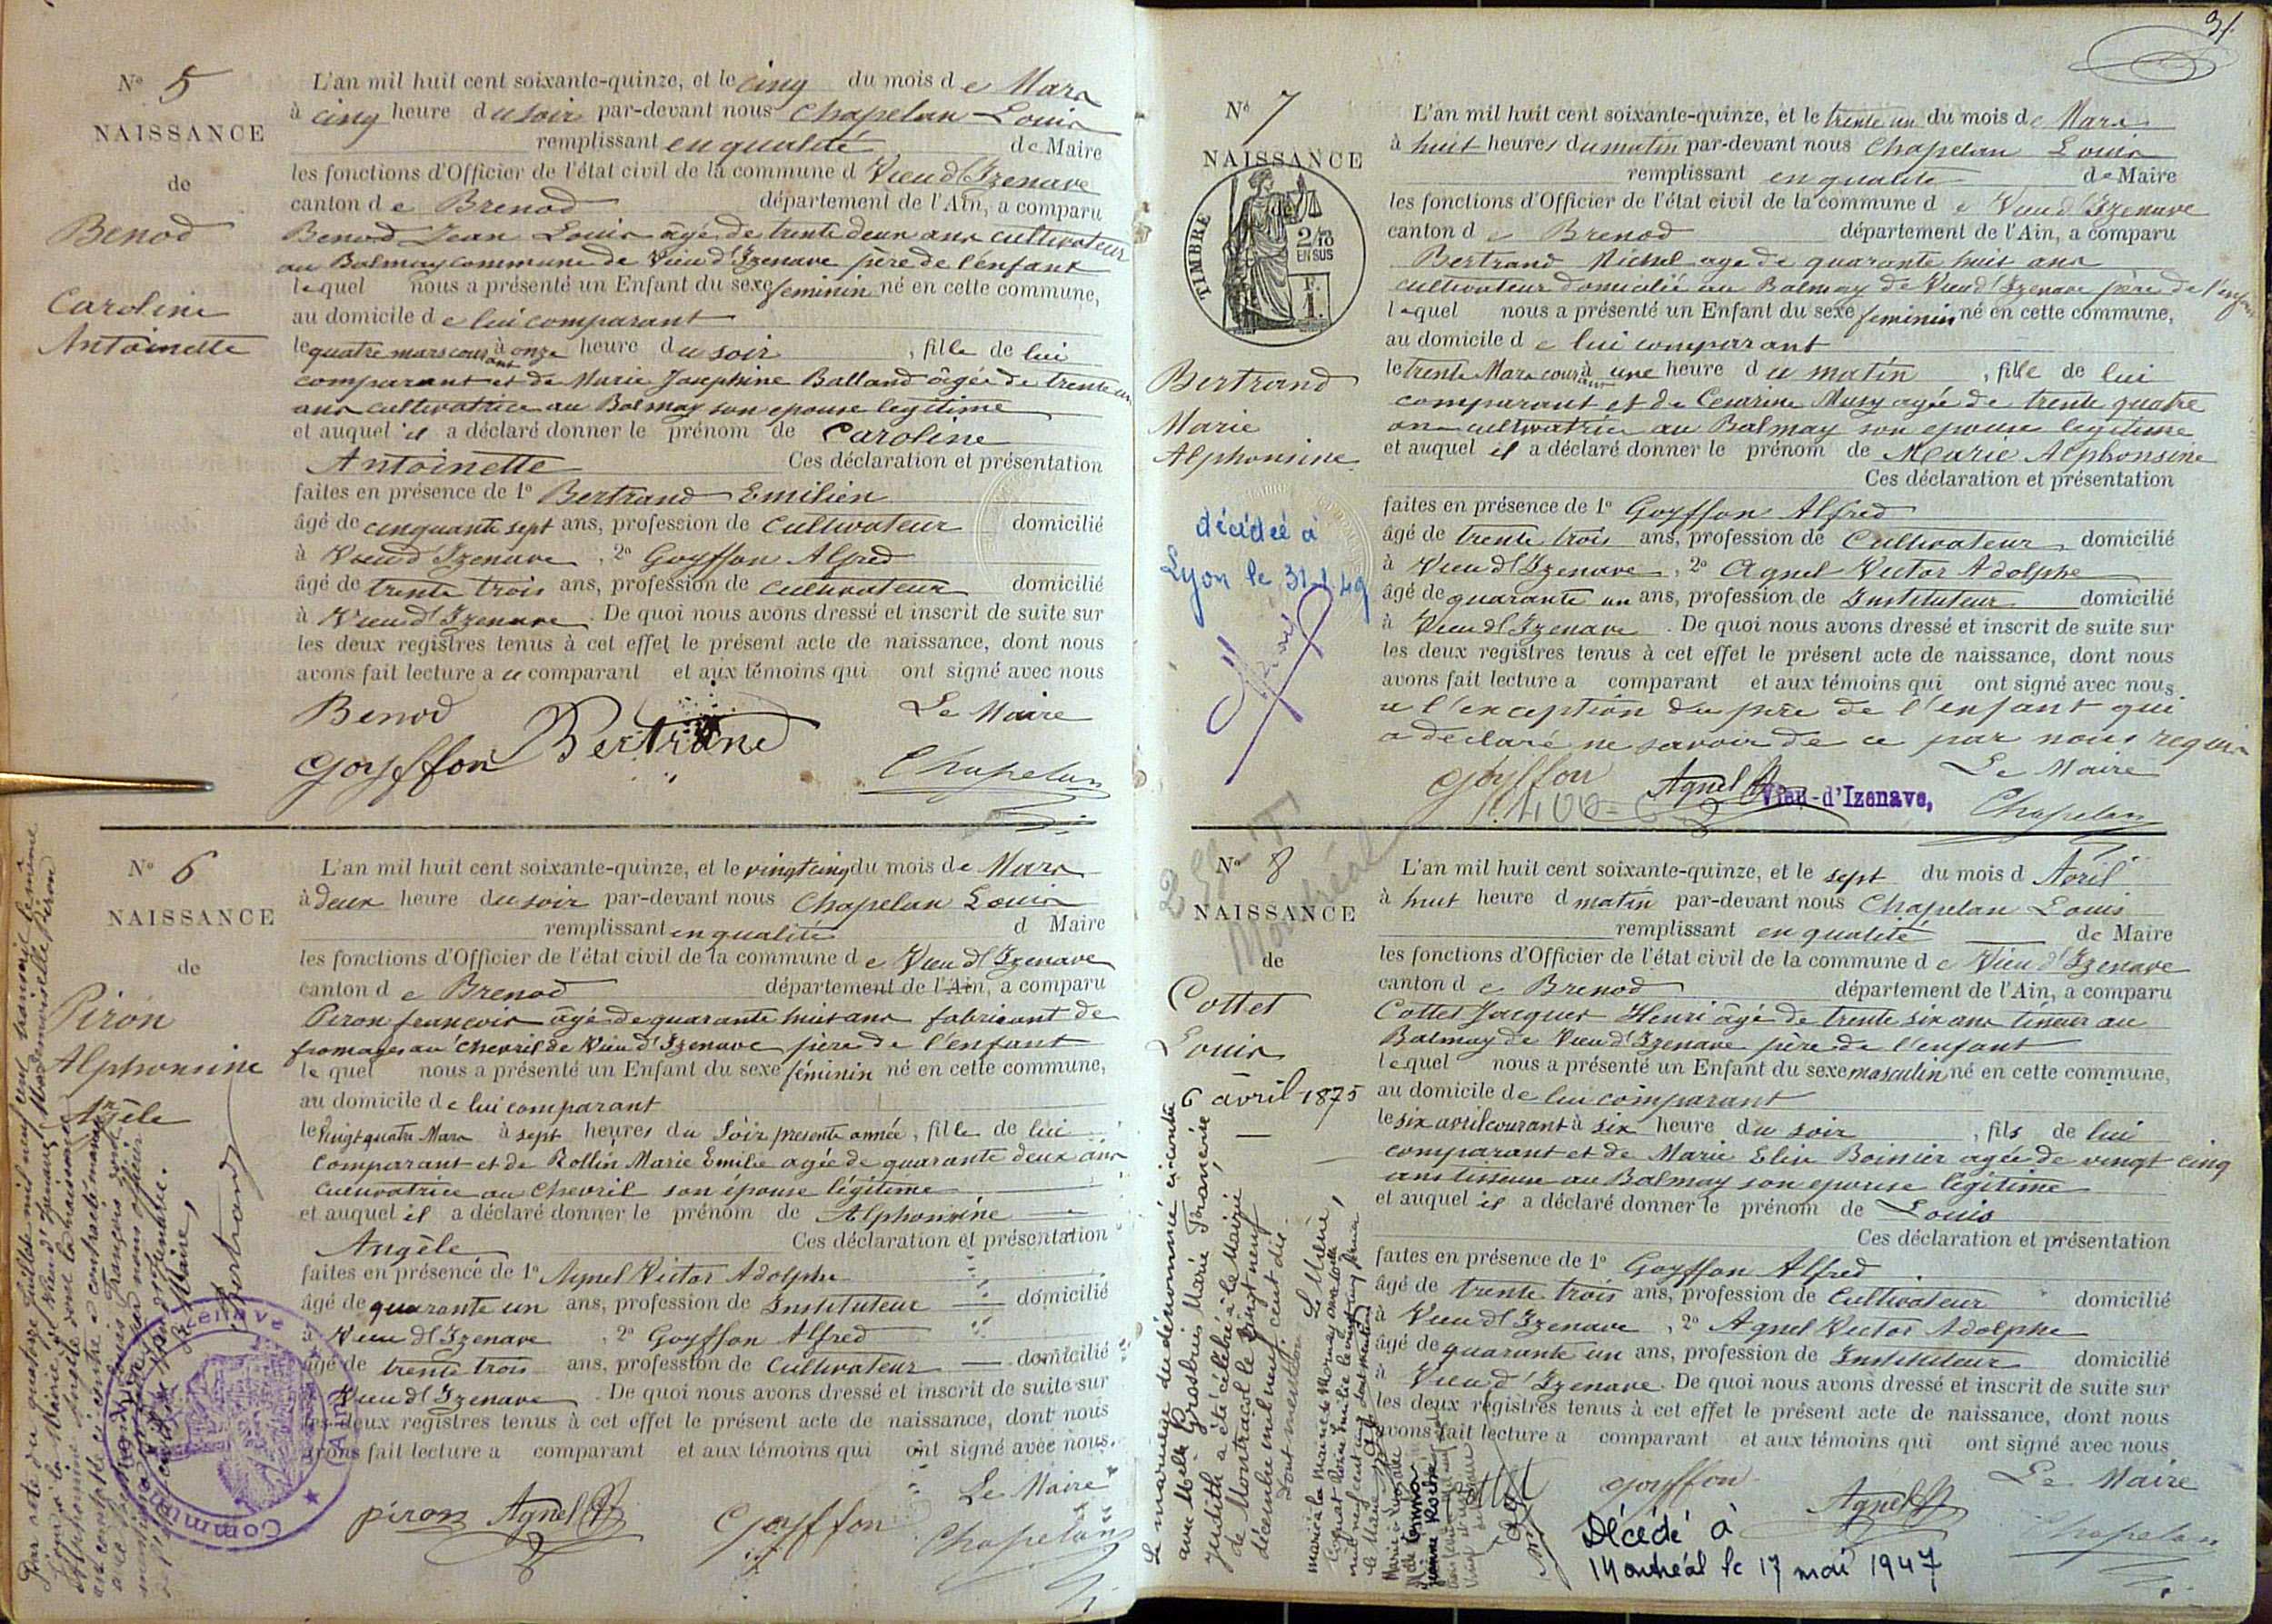 N° 5
NAISSANCE
de
Benod
Caroline
Antoinette
L'an mil huit cent soixante-quinze, et le cinq du mois de Mars
à cinq heure du soir par-devant nous Chapelan Louis
remplissant en qualité de Maire
les fonctions d'Officier de l'état civil de la commune d Vieu d'Izenave
canton de Brenod département de l'Ain, a comparu
Benod Jean Louis âgé de trente deux ans cultivateur
au Balmay commune de Vieu d'Izenave père de l'enfant
lequel nous a présenté un Enfant du sexe feminin né en cette commune,
au domicile de lui comparant
le quatre mars courant à onze heure du soir, fille de lui
comparant et de Marie Josephine Balland âgée de trente un
ans cultivatrice au Balmay son epouse legitime
et auquel il a déclaré donner le prénom de Caroline
Antoinette Ces déclaration et présentation
faites en présence de 1° Bertrand Emilien
âgé de cinquante sept ans, profession de Cultivateur domicilié
à Vieu d'Izenave, 2° Goyffon Alfred
âgé de trente trois ans, profession de cultivateur domicilié
à Vieu d'Izenave. De quoi nous avons dressé et inscrit de suite sur
les deux registres tenus à cet effet le présent acte de naissance, dont nous
avons fait lecture au comparant et aux témoins qui ont signé avec nous
Benod Bertrand Le Maire
Goyffon Chapelan
N° 6
NAISSANCE
de
Piron
Alphonsine
Angèle
L'an mil huit cent soixante-quinze, et le vingt cinq du mois de Mars
à deux heure du soir par-devant nous Chapelan Louis
remplissant en qualité d Maire
les fonctions d'Officier de l'état civil de la commune de Vieu d'Izenave
canton de Brenod département de l'Ain, a comparu
Piron françois âgé de quarante huit ans fabricant de
fromages au Chevril de Vieu d'Izenave père de l'enfant
lequel nous a présenté un Enfant du sexe féminin né en cette commune,
au domicile de lui comparant
le vingt quatre Mars à sept heures du Soir presente année, fille de lui
comparant et de Rollin Marie Emilie agée de quarante deux ans
cultivatrice au Chevril son épouse légitime
et auquel il a déclaré donner le prénom de Alphonsine
Angèle Ces déclaration et présentation
faites en présence de 1° Agnel Victor Adolphe
âgé de quarante un ans, profession de Instituteur domicilié
à Vieu d'Izenave, 2° Goyffon Alfred
âgé de trente trois ans, profession de Cultivateur domicilié
à Vieu d'Izenave. De quoi nous avons dressé et inscrit de suite sur
les deux registres tenus à cet effet le présent acte de naissance, dont nous
avons fait lecture a comparant et aux témoins qui ont signé avec nous.
Le Maire
piron Agnel Goyffon Chapelan
Par acte du quatorze Juillet mil neuf cent
Le Maire,
Bertrand
Commune
31
N° 7
NAISSANCE
de
TIMBRE
2/10
EN SUS
F.
1.
Bertrand
Marie
Alphonsine
décédée à
Lyon le 31.1.49
L'an mil huit cent soixante-quinze, et le trente un du mois de Mars
à huit heures du matin par-devant nous Chapelan Louis
remplissant en qualité de Maire
les fonctions d'Officier de l'état civil de la commune de Vieu d'Izenave
canton de Brenod département de l'Ain, a comparu
Bertrand Michel age de quarante huit ans
cultivateur domicilié au Balmay de Vieu d'Izenave père de l'enfant
lequel nous a présenté un Enfant du sexe feminin né en cette commune,
au domicile de lui comparant
le trente Mars courant à une heure du matin, fille de lui
comparant et de Cesarine Musy agée de trente quatre
ans cultivatrice au Balmay son epouse legitime
et auquel il a déclaré donner le prénom de Marie Alphonsine
Ces déclaration et présentation
faites en présence de 1° Goyffon Alfred
âgé de trente trois ans, profession de Cultivateur domicilié
à Vieu d'Izenave, 2° Agnel Victor Adolphe
âgé de quarante un ans, profession de Instituteur domicilié
à Vieu d'Izenave. De quoi nous avons dressé et inscrit de suite sur
les deux registres tenus à cet effet le présent acte de naissance, dont nous
avons fait lecture a comparant et aux témoins qui ont signé avec nous.
a l'exception du père de l'enfant qui
a declaré ne savoir de ce par nous requis
Goyffon Agnel Le Maire
Vieu-d'Izenave,
Chapelan
Montréal
N° 8
NAISSANCE
de
Cottet
Louis
6 avril 1875
L'an mil huit cent soixante-quinze, et le sept du mois d Avril
à huit heure d matin par-devant nous Chapelan Louis
remplissant en qualité de Maire
les fonctions d'Officier de l'état civil de la commune de Vieu d'Izenave
canton de Brenod département de l'Ain, a comparu
Cottet Jacques Henri âgé de trente six ans tisseur au
Balmay de Vieu d'Izenave père de l'enfant
lequel nous a présenté un Enfant du sexe masculin né en cette commune,
au domicile de lui comparant
le six avril courant à six heure du soir, fils de lui
comparant et de Marie Elise Boinier agée de vingt cinq
ans tisseuse au Balmay son epouse légitime
et auquel il a déclaré donner le prénom de Louis
Ces déclaration et présentation
faites en présence de 1° Goyffon Alfred
âgé de trente trois ans, profession de Cultivateur domicilié
à Vieu d'Izenave, 2° Agnel Victor Adolphe
âgé de quarante un ans, profession de Instituteur domicilié
à Vieu d'Izenave. De quoi nous avons dressé et inscrit de suite sur
les deux registres tenus à cet effet le présent acte de naissance, dont nous
avons fait lecture a comparant et aux témoins qui ont signé avec nous
Goyffon Agnel Le Maire
Chapelan
Décédé à
Montréal le 17 mai 1947
Le mariage du dénommé ci-contre
avec Melle Grosbuis Marie Francine
Judith a été célébré à la Mairie
de Montracol le vingt neuf
décembre mil neuf cent dix
Dont mention
Le Maire,